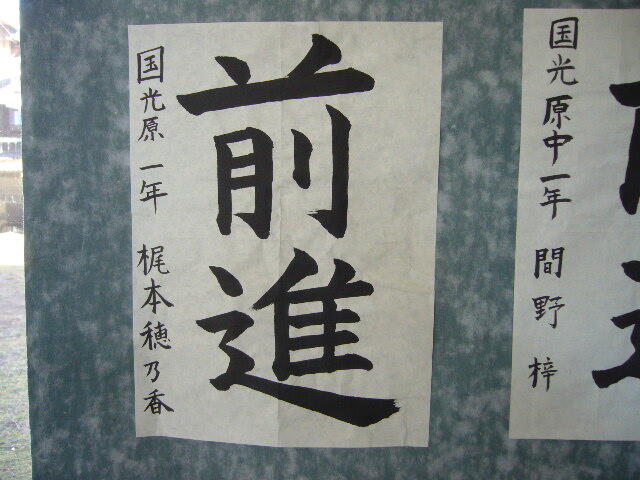 前進
国光原 一年 梶本穂乃香
国光原中一年 間野 梓